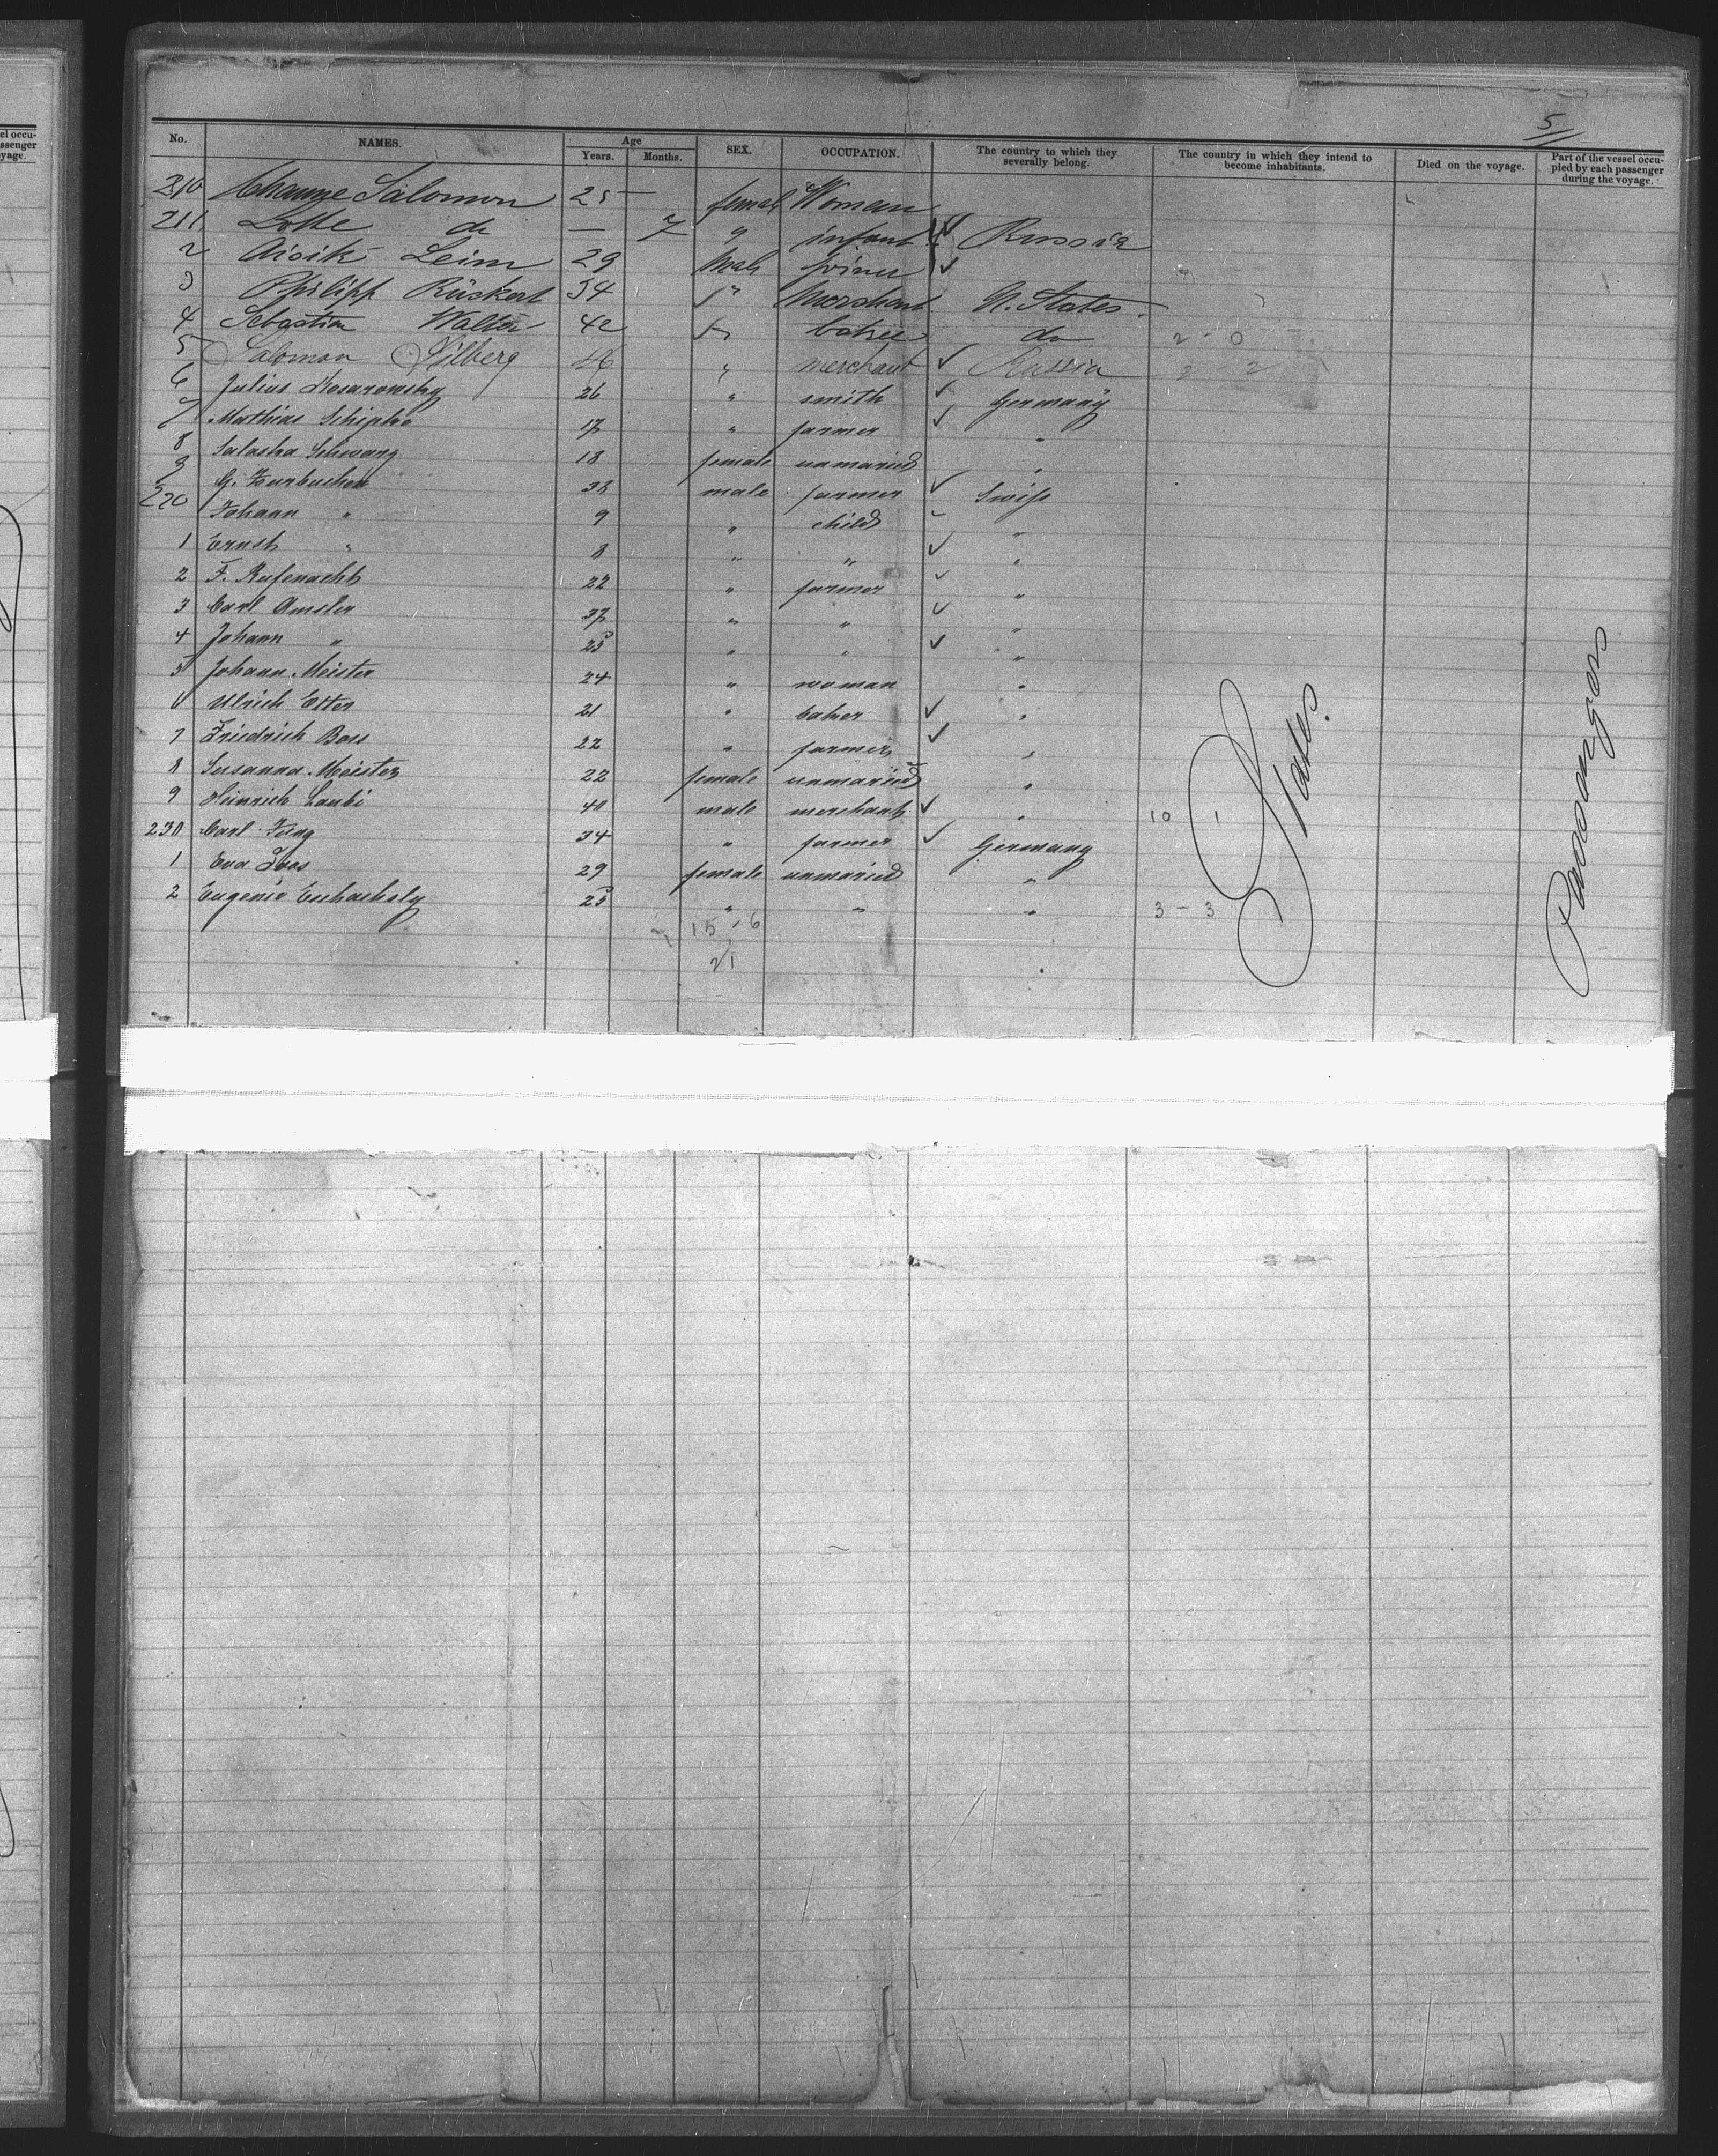 el occu-
ssenger
yage.
5
No. NAMES. Age SEX. OCCUPATION. The country to which they severally belong. The country in which they intend to become inhabitants. Died on the voyage. Part of the vessel occu-pied by each passenger during the voyage.
Years. Months.
210 Salomon 25 — female Woman
211 Lotte do — 7 " infant Russia
2 Leim 29 Male joiner
3 Philipp Rückert 54 " Merchant U. States
4 Sebastian Walter 42 " do 2 - 0
5 Salomon Silberg 46 " merchant Russia 2 2
6 Julius 26 " smith Germany
7 Mathias 17 " farmer "
8 Schwarz 18 female unmaried "
9 G. Zurbuchen 38 male farmer Swiss
220 Johann " 9 " child "
1 Ernst " 8 " " "
2 F. Rufenacht 22 " farmer "
3 Carl Amsler 37 " " "
4 Johann " 25 " " "
5 Johann Meister 24 " woman "
6 Ulrich Etter 21 " baker "
7 Friedrich Boss 22 " farmer "
8 Susanna Meister 22 female unmaried "
9 Heinrich Laubi 40 male merchant " 10 1
230 Carl Jung 34 " farmer Germany
1 Eva 29 female unmaried "
2 Eugenie 25 " " " 3 - 3
15 6
21
States.
Passengers